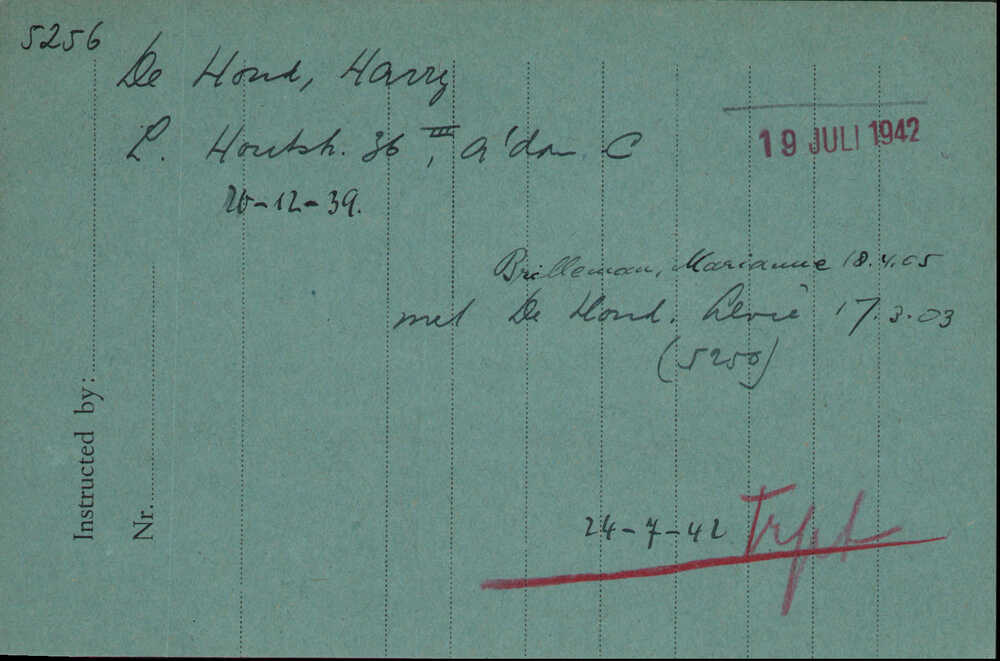 5256
De Hond, Harry
L. Houtstr. 36 III, A'dam C
19 JULI 1942
26-12-39.
Brilleman, Marianne 18.4.05
met De Hond. Levie 17.3.03
(5250)
Instructed by:
Nr.
24-7-42 Trpt